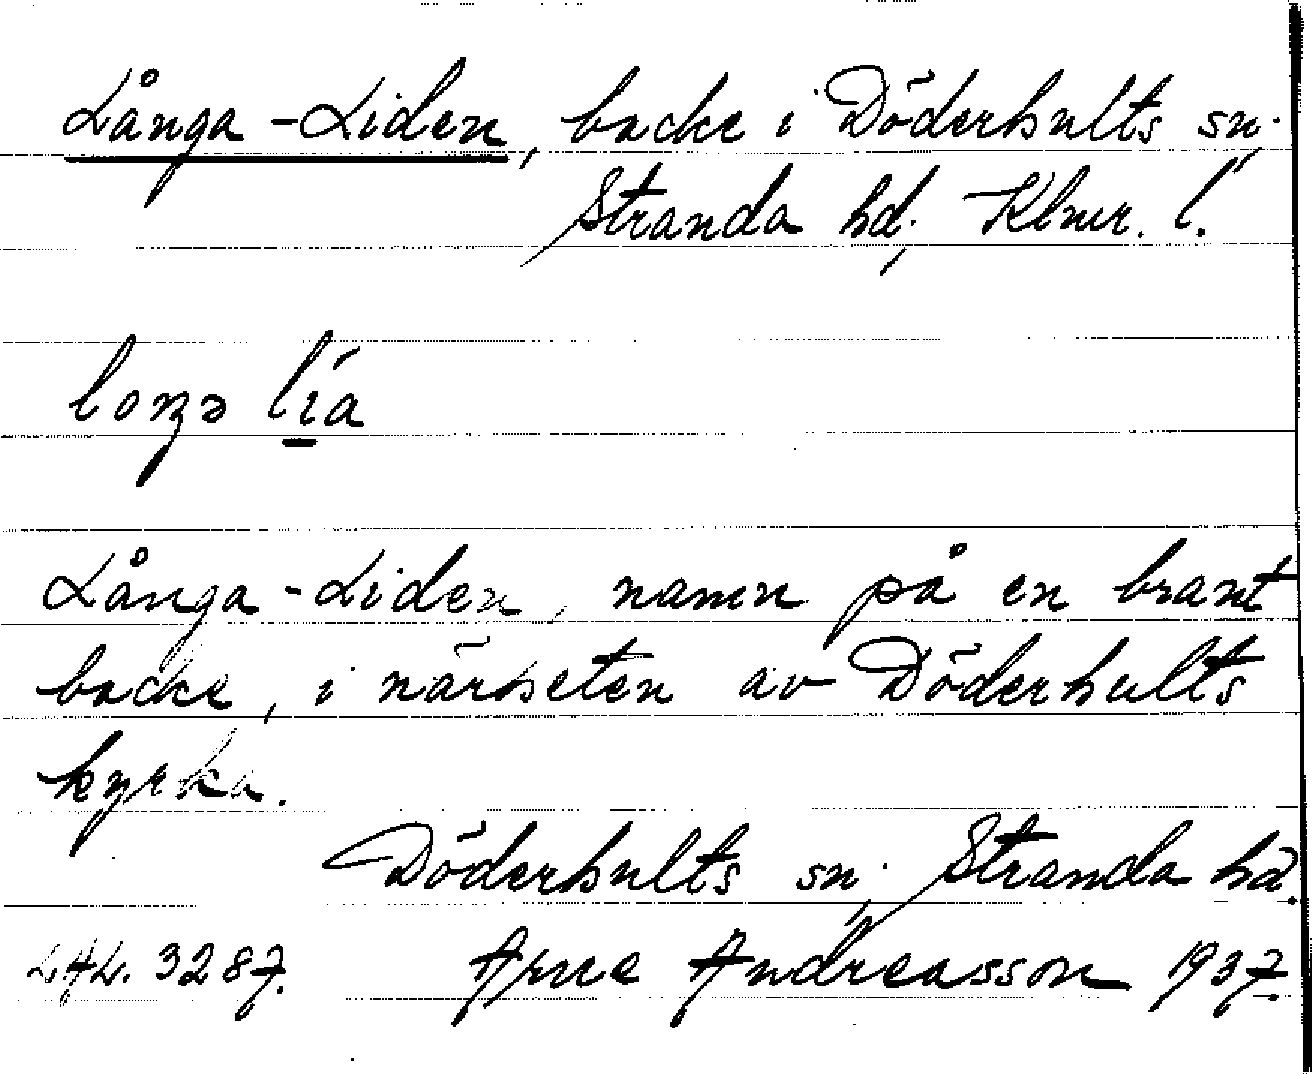 Långa-Liden, backe i Döderhults sn.,
Stranda hd., Klmr. l.
loŋə lía
Långa-Liden, namn på en brant
backe, i närheten av Döderhults
kyrka.
Döderhults sn., Stranda hd.
LAL. 3287. Arne Andreasson 1937.